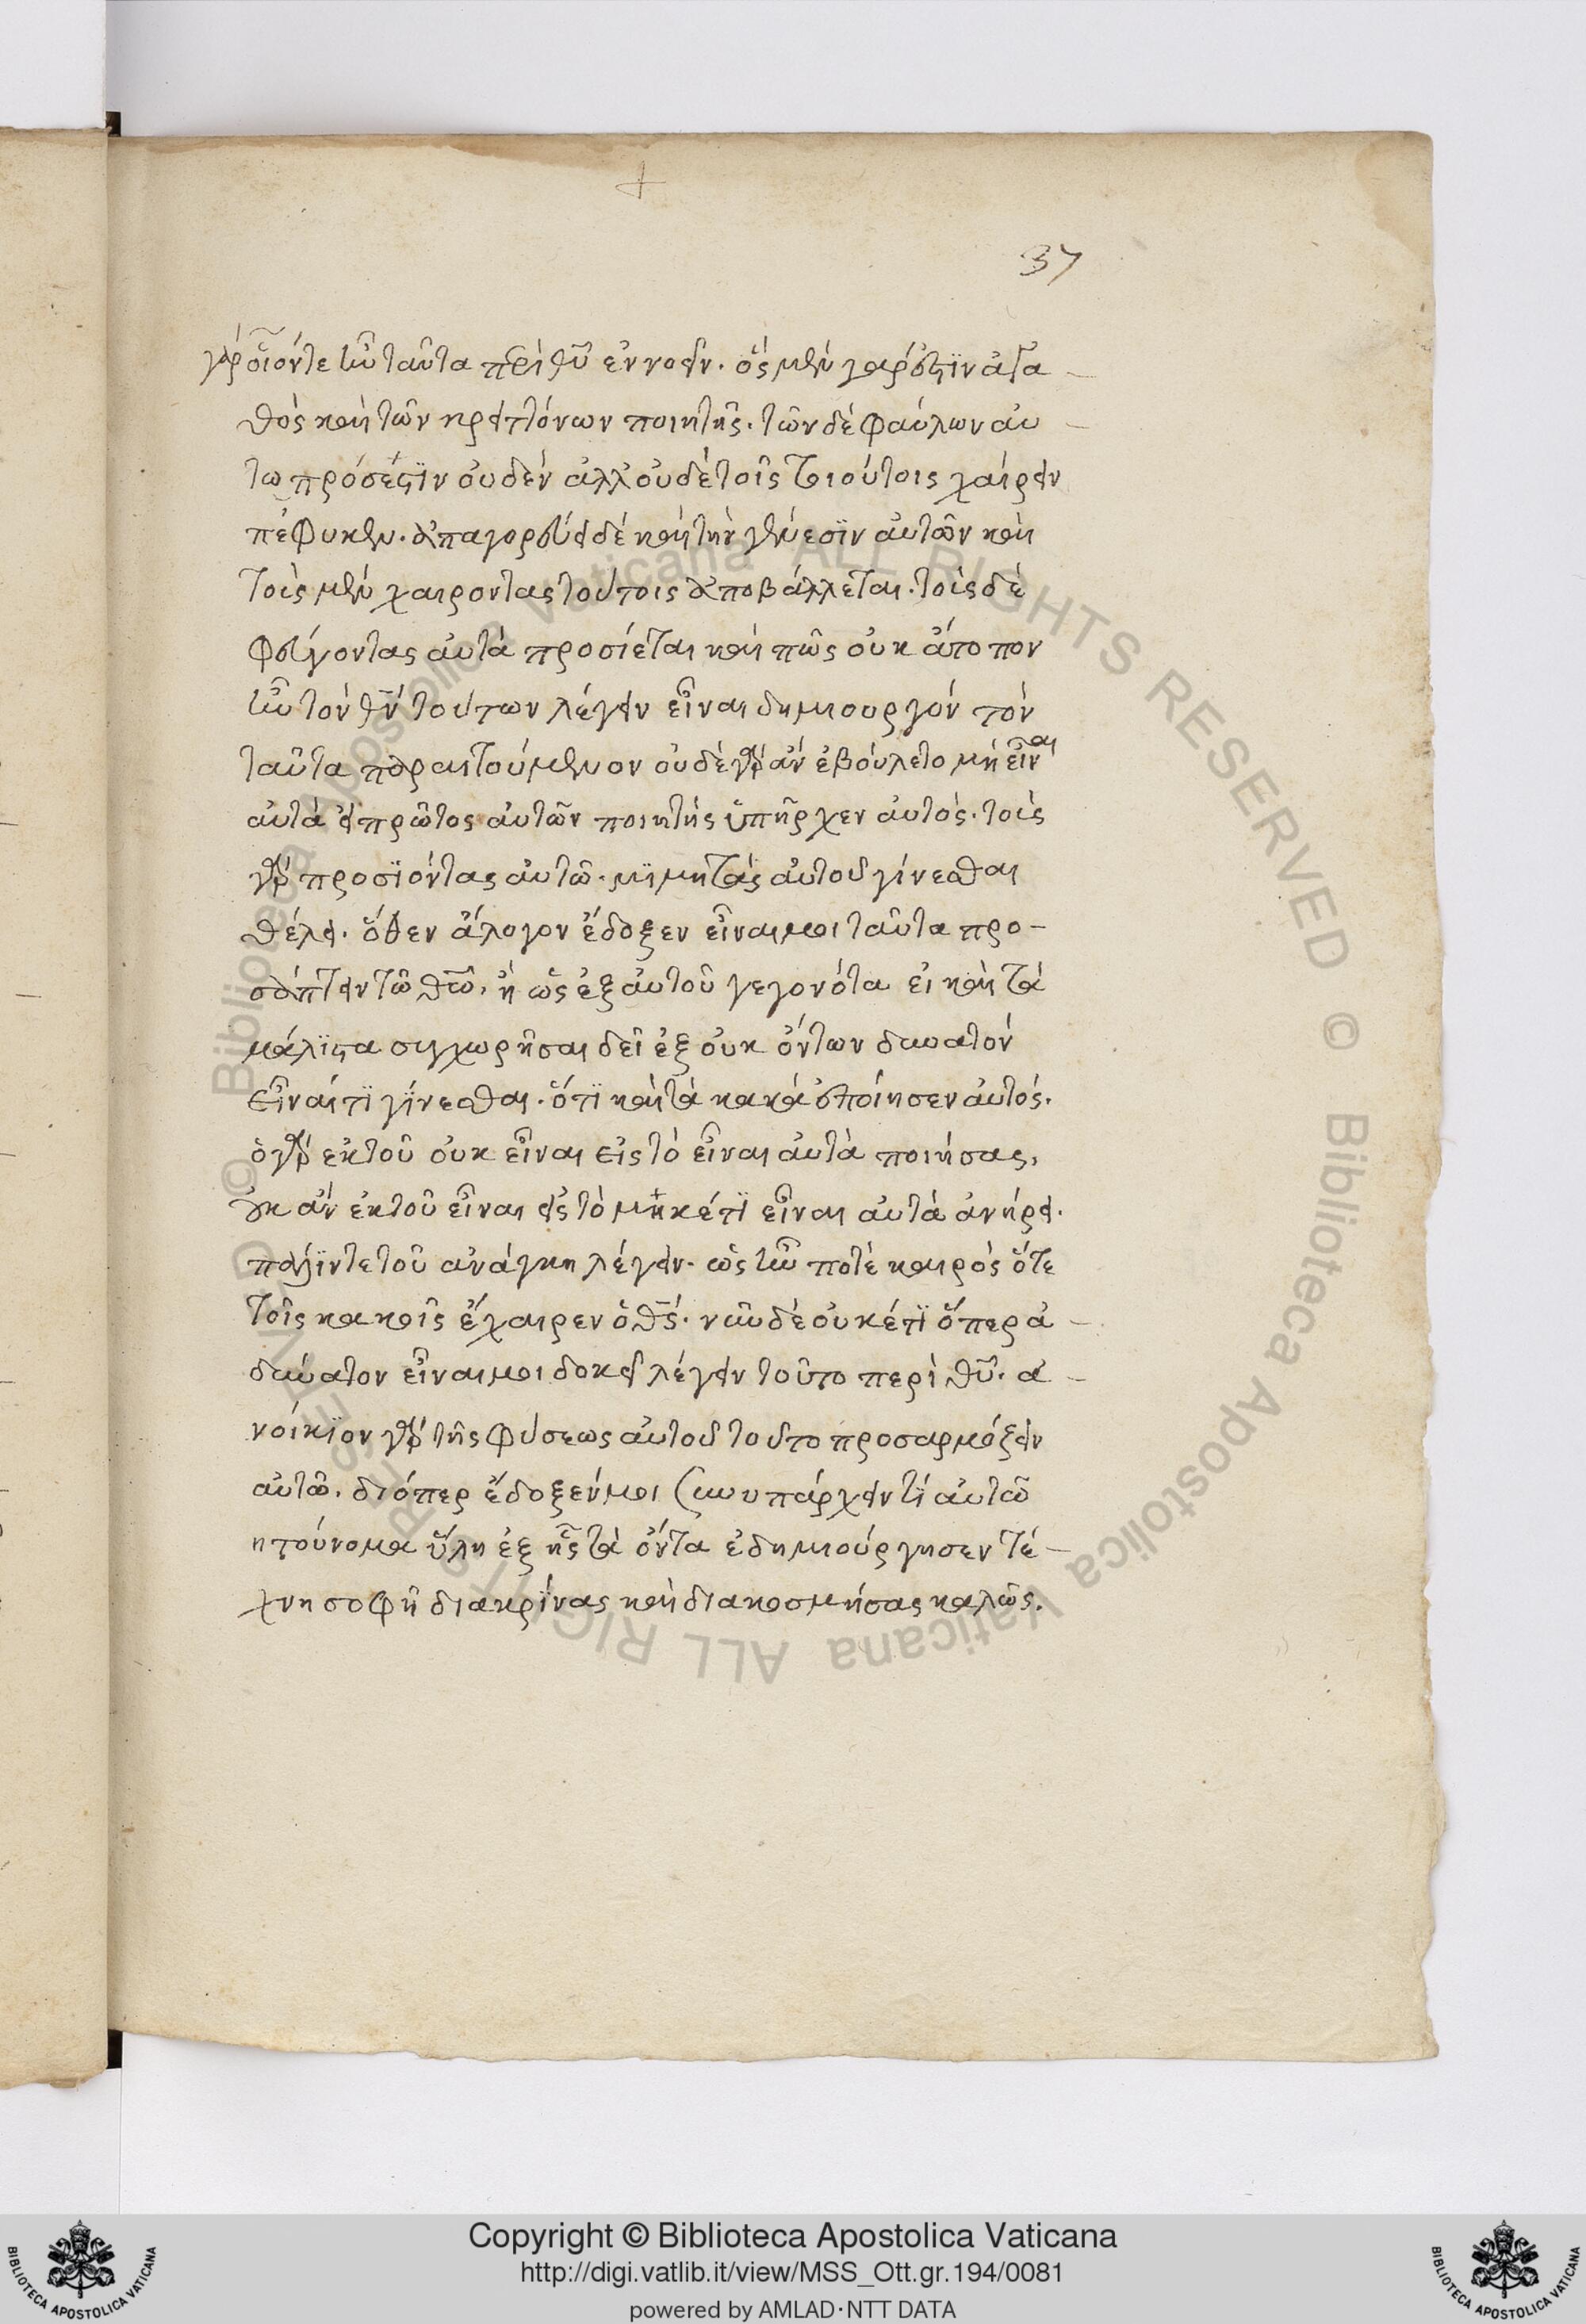 37
γὰρ οἷόν τε ἦν ταῦτα περὶ θῦ ἐννοεῖν. ὃς μὲν γάρ ἐστϊν ἀγα
θὸς καὶ τῶν κρειττόνων ποιητής. τῶν δὲ φαύλων αὐ
τω πρόσεστϊν οὐδὲν ἀλλ' οὐδὲ τοῖς τοιούτοις χαίρειν
πέφυκεν. ἀπαγορεύει δὲ καὶ τὴν γένεσϊν αὐτῶν καὶ
τοὺς μὲν χαιροντας τούτοις ἀποβάλλεται. τοὺς δὲ
φεύγοντας αὐτὰ προσίεται καὶ πῶς οὐκ ἄτοπον
ἦν τὸν θν τούτων λέγειν εἶναι δημιουργόν τὸν
ταῦτα παραιτούμενον οὐδὲ γὰρ ἂν ἐβούλετο μὴ εἶναι
αὐτὰ εἰ πρῶτος αὐτῶν ποιητής ὑπῆρχεν αὐτὸς. τοὺς
γὰρ προσϊόντας αὐτῶ. μϊμητὰς αὐτοῦ γίνεσθαι
θέλει. ὅθεν ἄλογον ἔδοξεν εἶναι μοι ταῦτα προ-
σάπτειν τῶ θῶ. ἢ ὡς ἐξ αὐτοῦ γεγονότα εἰ καὶ τὰ
μάλϊστα συγχωρῆσαι δεῖ ἐξ οὐκ ὄντων δυνατὸν
εἶναί τϊ γίνεσθαι. ὅτϊ καὶ τὰ κακὰ ἐποίησεν αὐτός.
ὁ γὰρ ἐκ τοῦ οὐκ εἶναι εἰς τὸ εἶναι αὐτὰ ποιήσας,
οὐκ ἂν ἐκ τοῦ εἶναι εἰς τὸ μηκέτϊ εἶναι αὐτὰ ἀνήρει.
πάλϊν τε τοῦ ἀνάγκη λέγειν. ὡς ἦν ποτὲ καιρὸς ὅτε
τοῖς κακοῖς ἔχαιρεν ὁ θς. νῦν δὲ οὐκέτϊ ὅπερ ἀ
δύνατον εἶναι μοι δοκεῖ λέγειν τοῦτο περὶ θῦ. ἀ
νοίκϊον γὰρ τῆς φύσεως αὐτοῦ τοῦτο προσαρμόζειν
αὐτῶ. διόπερ ἔδοξέν μοι συνυπάρχειν τί αὐτῶ
ητούνομα ὕλη ἐξ ἧς τὰ ὄντα ἐδημιούργησεν τέ-
χνη σοφῆ διακρίνας καὶ διακοσμήσας καλῶς.
© Biblioteca Apostolica Vaticana ALL RIGHTS RESERVED
Copyright © Biblioteca Apostolica Vaticana
http://digi.vatlib.it/view/MSS_Ott.gr.194/0081
powered by AMLAD·NTT DATA
BIBLIOTECA APOSTOLICA VATICANA
BIBLIOTECA APOSTOLICA VATICANA